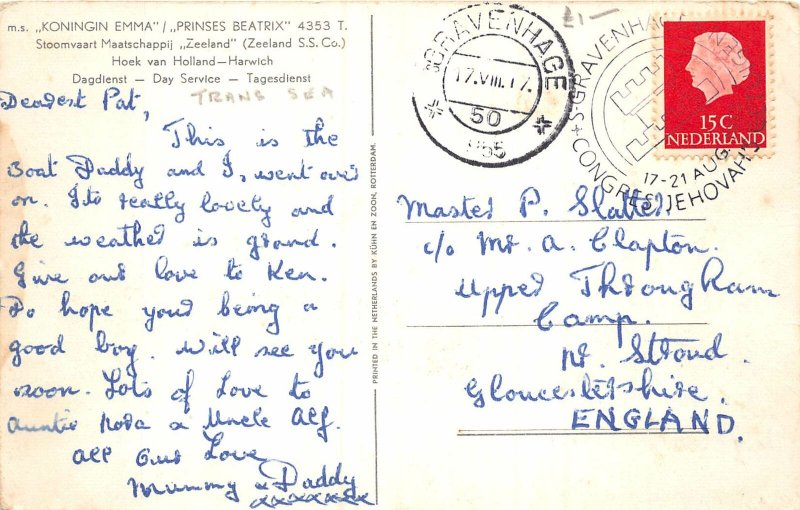 m.s. „KONINGIN EMMA"/„PRINSES BEATRIX" 4353 T.
Stoomvaart Maatschappij „Zeeland" (Zeeland S.S. Co.)
Hoek van Holland—Harwich
Dagdienst — Day Service — Tagesdienst
TRANS SEA
Dearest Pat,
This is the
boat Daddy and I, went over
on. Its really lovely and
the weather is grand.
Give our love to Ken.
Do hope your being a
good boy. will see you
soon. Lots of love to
Auntie Rosa & Uncle Alf.
All Our Love
Mummy & Daddy
xxxxxxxx
PRINTED IN THE NETHERLANDS BY KÜHN EN ZOON, ROTTERDAM.
£1—
'S-GRAVENHAGE
17.VIII.17.
50
1955
'S-GRAVENHAGE
CONGRES JEHOVAH'S
17-21 AUG.
15C
NEDERLAND
Master P. Slatter.
c/o Mr. A. Clapton.
Upper Throngham
Camp.
Nr. Stroud.
Gloucestershire.
ENGLAND.